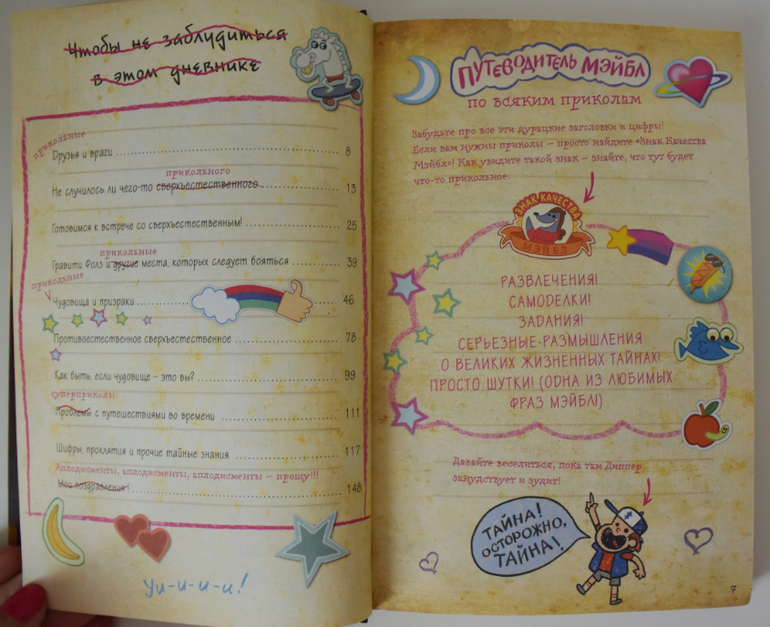 Чтобы не заблудиться
в этом дневнике
прикольные
Друзья и враги 8
прикольного
Не случилось ли чего-то сверхъестественного 13
Готовимся к встрече со сверхъестественным! 25
прикольные
Гравити Фолз и другие места, которых следует бояться 39
прикольные
Чудовища и призраки 46
Противоестественное сверхъестественное 78
Как быть, если чудовище – это вы? 99
суперприколы
Проблемы с путешествиями во времени 111
Шифры, проклятия и прочие тайные знания 117
Аплодисменты, аплодисменты, аплодисменты – прошу!!!
Мои поздравления! 148
Уи-и-и-и!
ПУТЕВОДИТЕЛЬ МЭЙБЛ
по всяким приколам
Забудьте про все эти дурацкие заголовки и цифры!
Если вам нужны приколы – просто найдите «Знак Качества
Мэйбл»! Как увидите такой знак – знайте, что тут будет
что-то прикольное
ЗНАК КАЧЕСТВА
МЭЙБЛ
РАЗВЛЕЧЕНИЯ!
САМОДЕЛКИ!
ЗАДАНИЯ!
СЕРЬЕЗНЫЕ РАЗМЫШЛЕНИЯ
О ВЕЛИКИХ ЖИЗНЕННЫХ ТАЙНАХ!
ПРОСТО ШУТКИ! (ОДНА ИЗ ЛЮБИМЫХ
ФРАЗ МЭЙБЛ!)
Давайте веселиться, пока там Диппер
занудствует и зудит!
ТАЙНА!
ОСТОРОЖНО,
ТАЙНА!
7